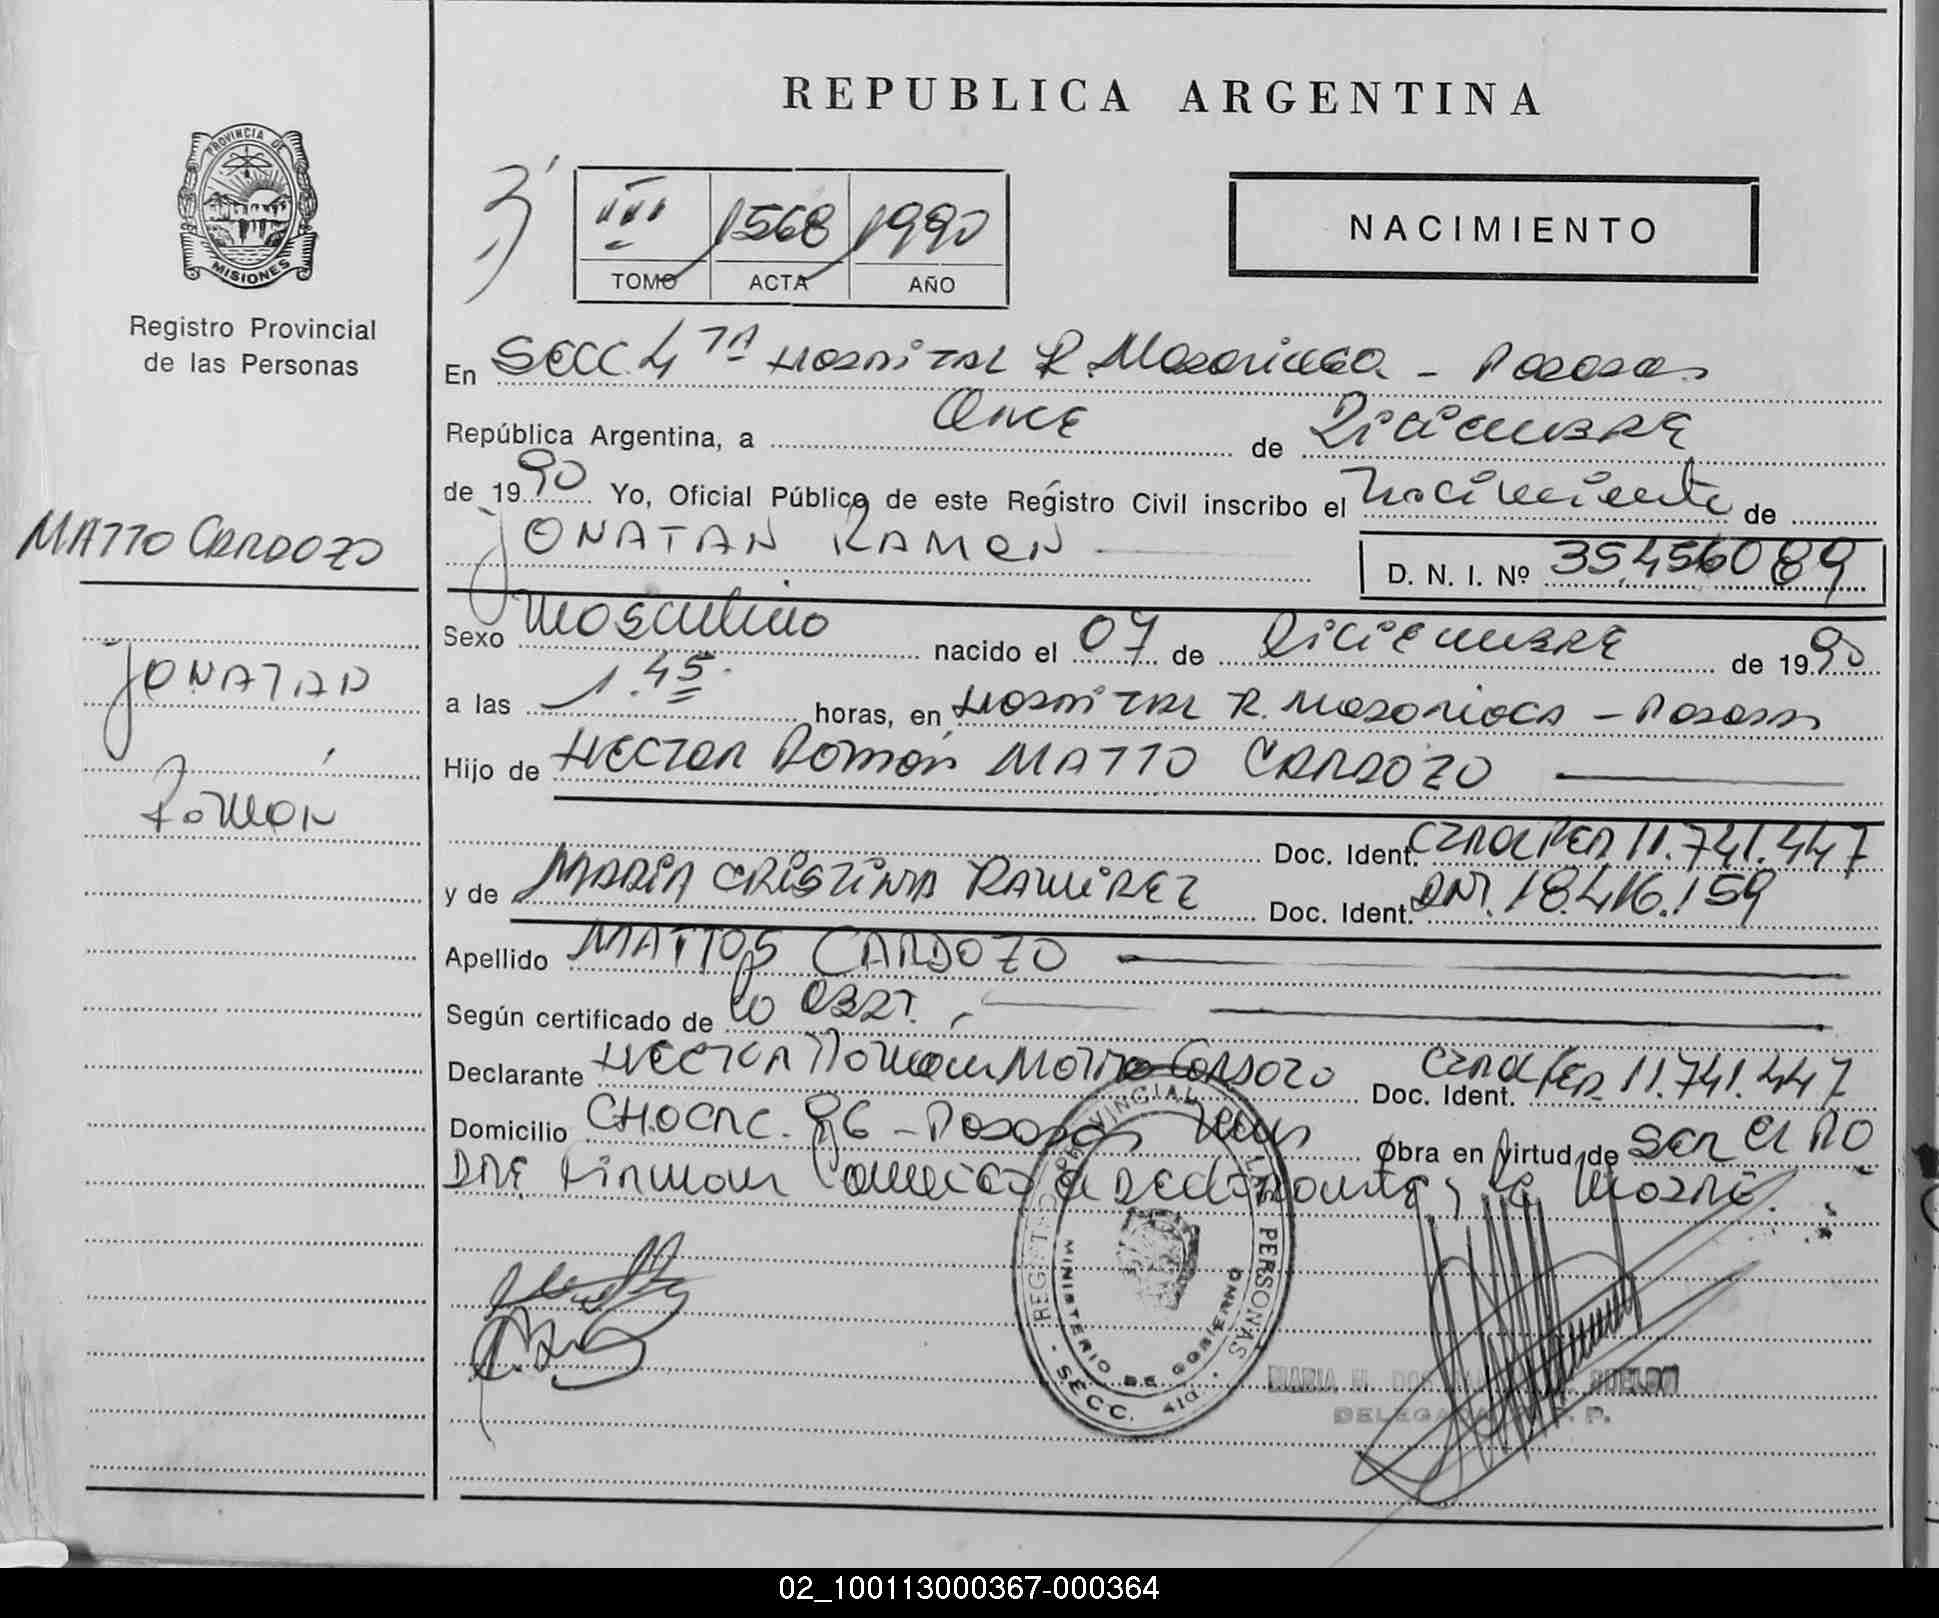 REPUBLICA ARGENTINA
PROVINCIA DE
MISIONES
Registro Provincial
de las Personas
3
III 1568 1990
TOMO ACTA AÑO
NACIMIENTO
En SECC. 4TA HOSPITAL R. Madariaga - Posadas
República Argentina, a ONCE de DICIEMBRE
de 1990 Yo, Oficial Público de este Registro Civil inscribo el Nacimiento de
JONATAN RAMON D. N. I. Nº 35.456089
MATTO CARDOZO
JONATAN
Ramón
Sexo Masculino nacido el 07 de DICIEMBRE de 1990
a las 1.45 horas, en HOSPITAL R. Madariaga - Posadas
Hijo de HECTOR Ramón MATTO CARDOZO
Doc. Ident. 11.741.447
y de MARIA CRISTINA RAMIREZ Doc. Ident. DNI. 18.416.159
Apellido MATTOS CARDOZO
Según certificado de la OBST.
Declarante HECTOR Ramon Matto Cardozo Doc. Ident. 11.741.447
Domicilio CHACRA. 86 - Posadas Mnes Obra en virtud de SER EL PA
DRE Firman el declarante y la Madre.
REGISTRO PROVINCIAL DE LAS PERSONAS
MINISTERIO DE GOBIERNO
SECC. 4ta.
MARIA
DELEGADA R. P.
02_100113000367-000364